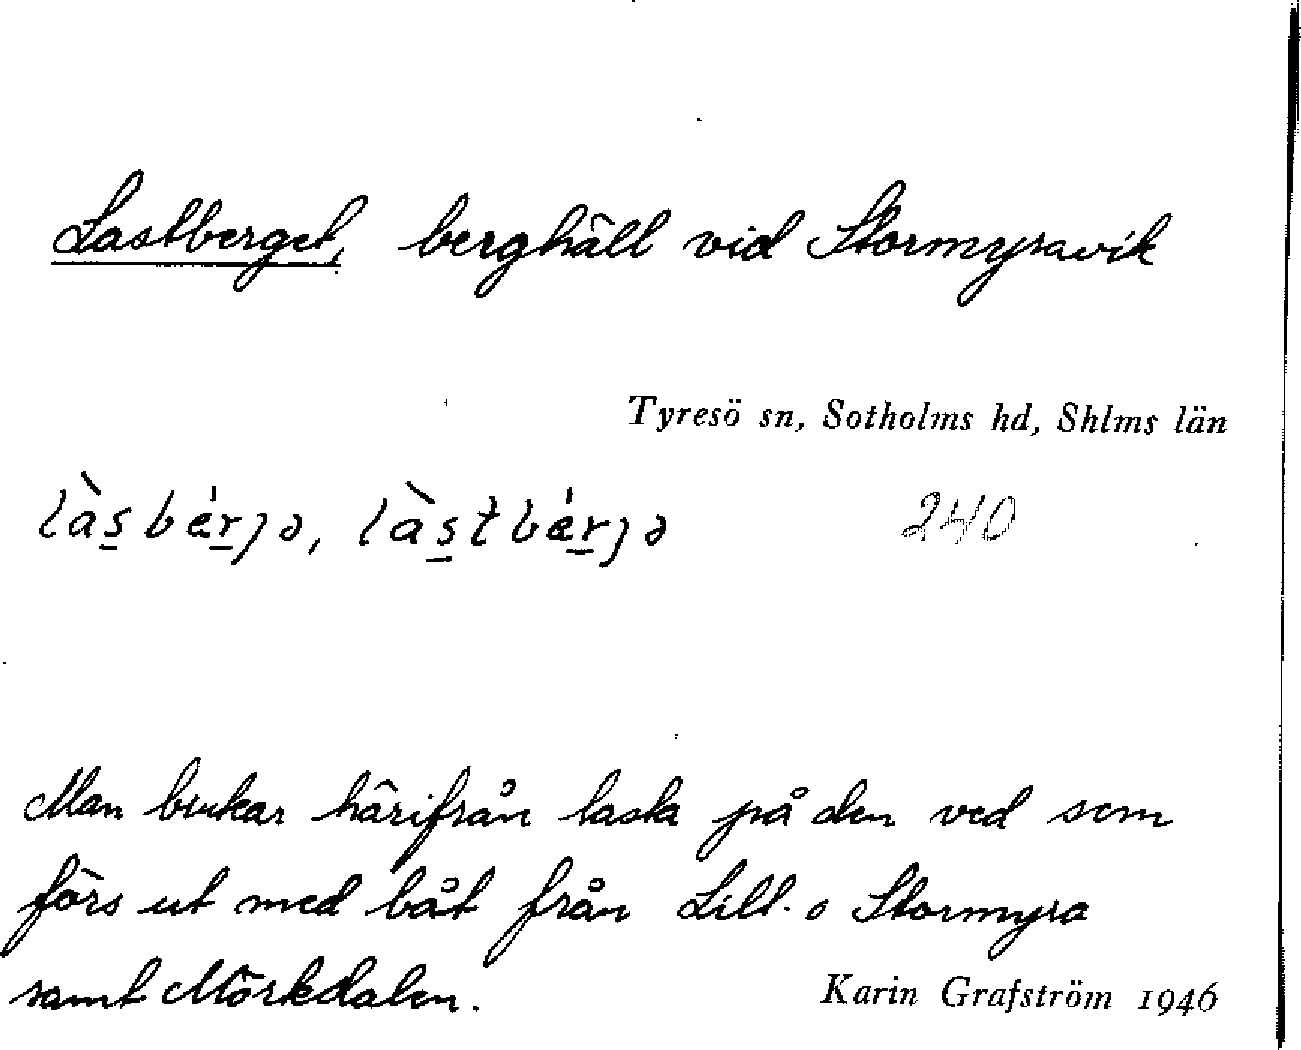 Lastberget, berghäll vid Stormyravik
Tyresö sn, Sotholms hd, Shlms län
làs̱bér̲jə, làs̱tbér̲jə 240
Man brukar härifrån lasta på den ved som
förs ut med båt från Lill- o Stormyra
samt Mörkdalen.
Karin Grafström 1946